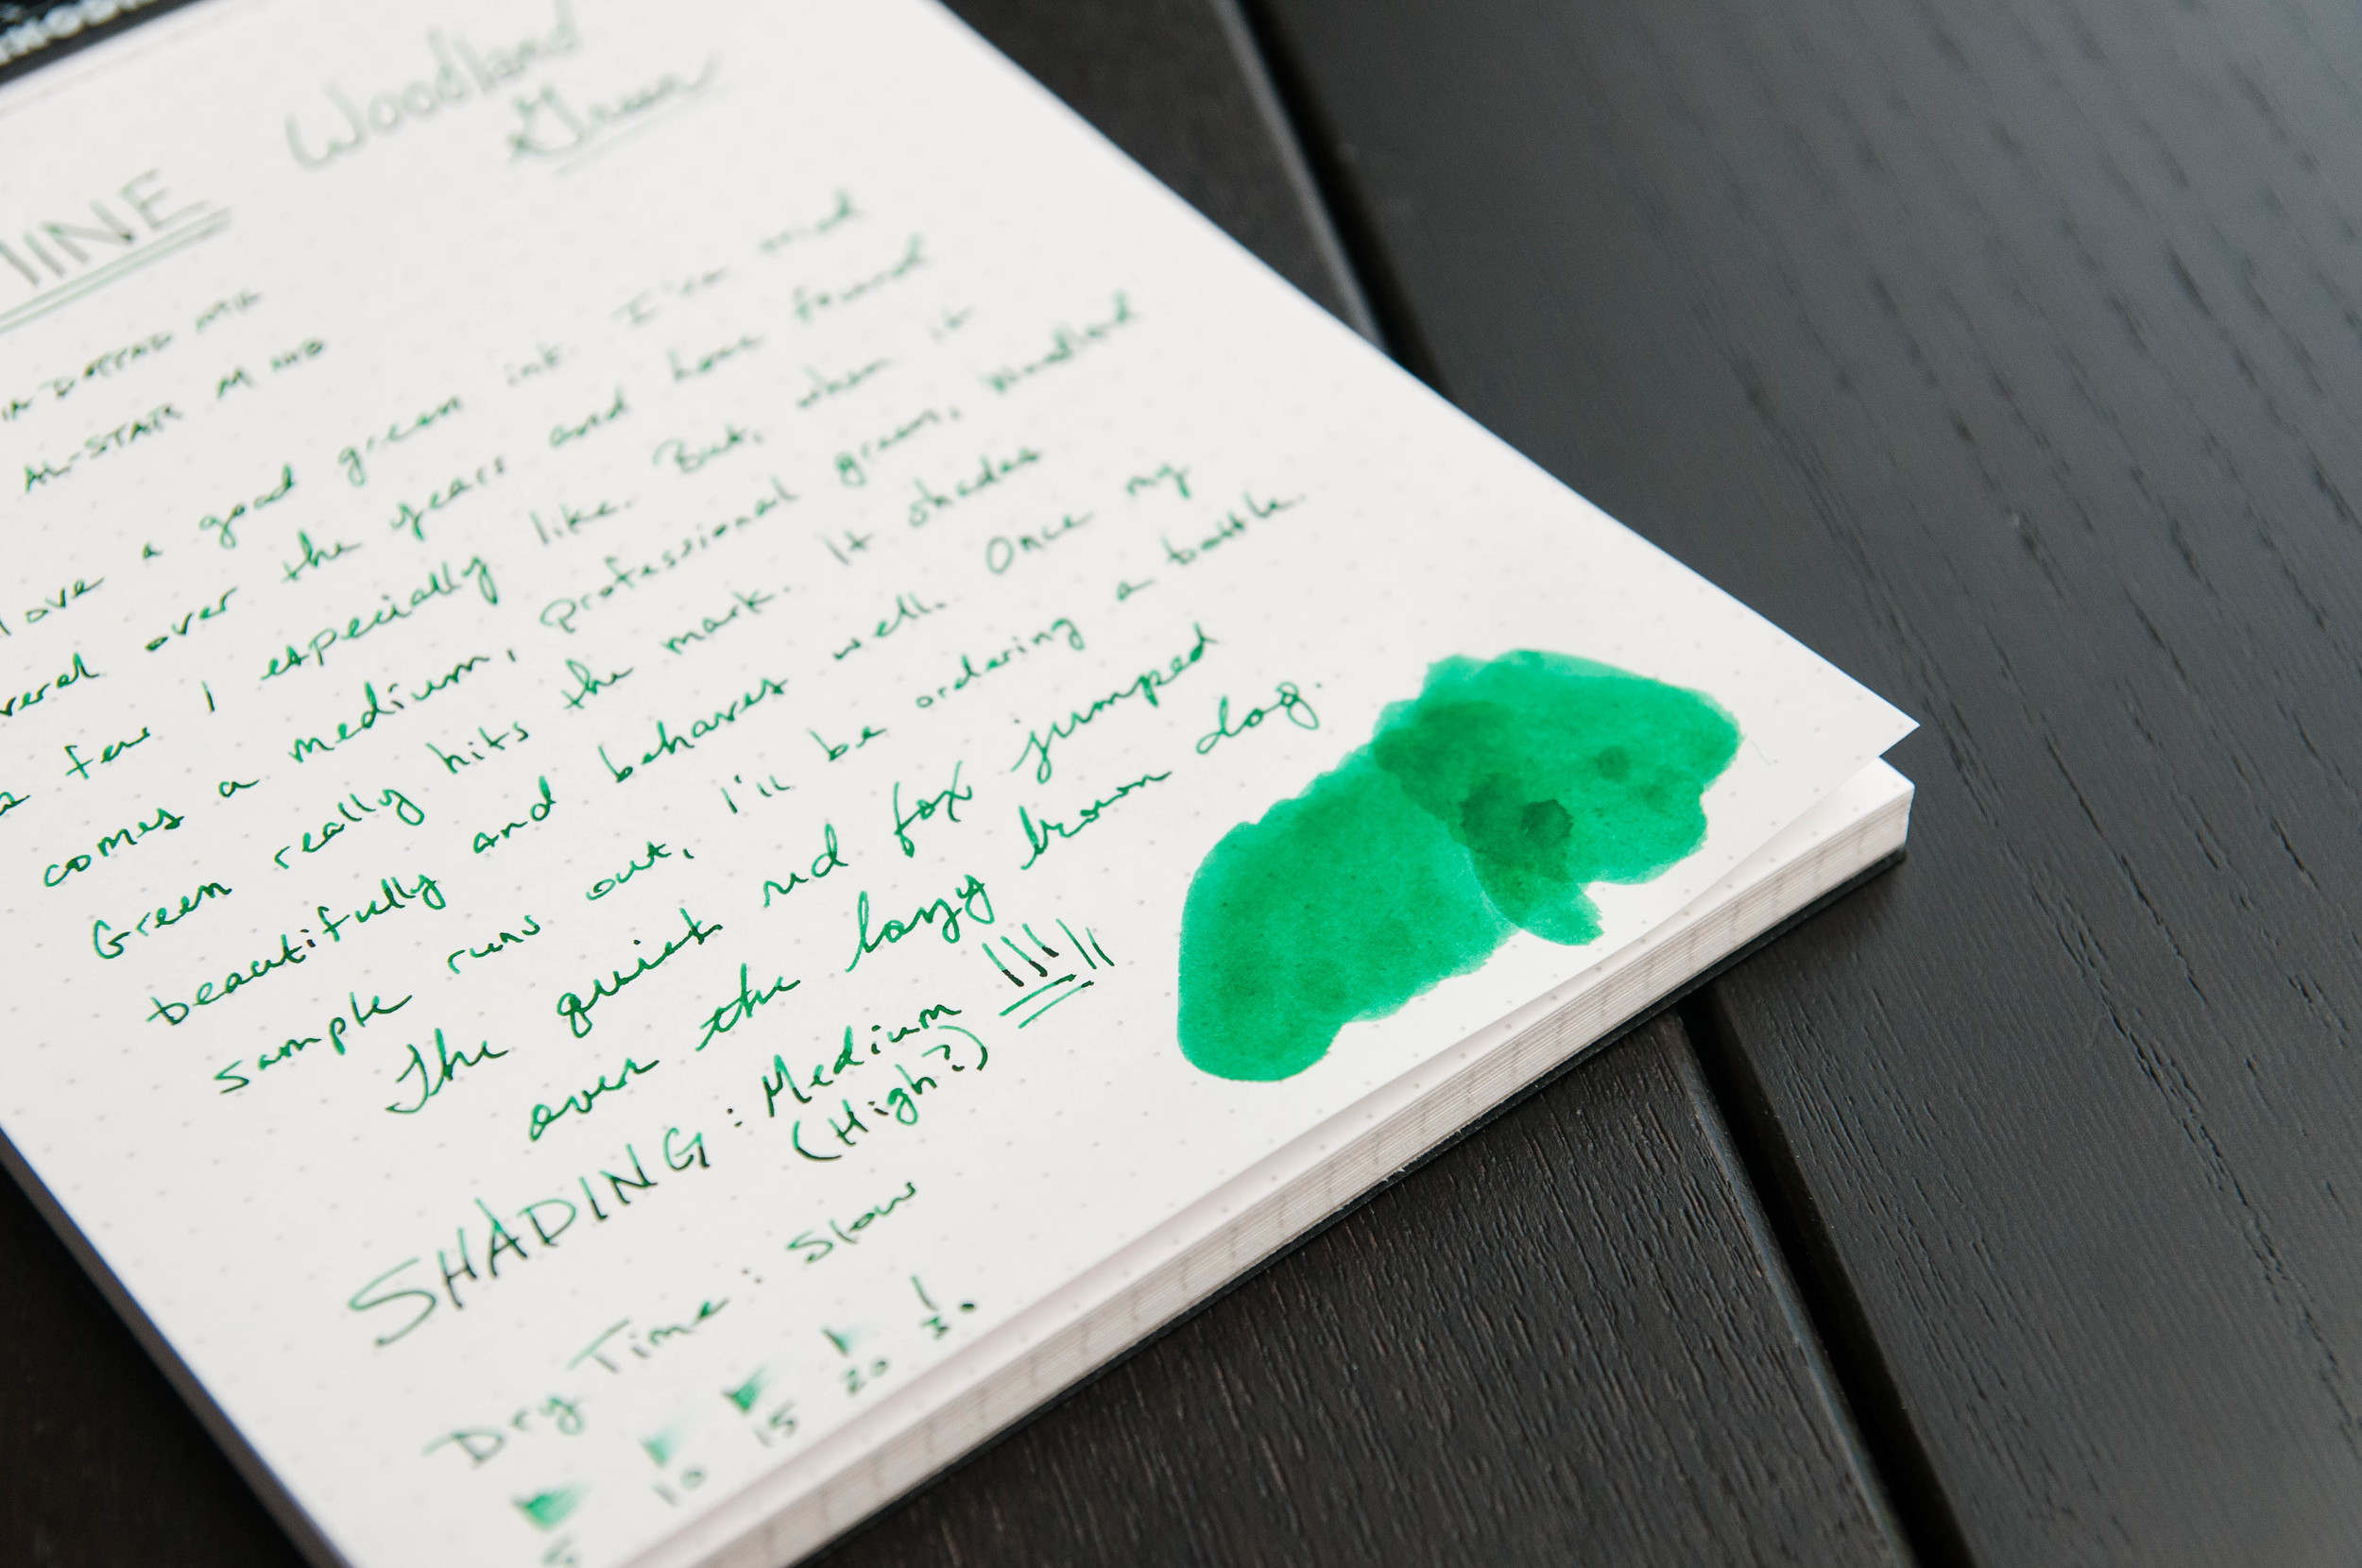 Woodland
Green
INE
AL-STAR M NIB
love a good green ink. I've tried
over the years and have found
a few I especially like. But, when it
comes a medium, professional green, Woodland
Green really hits the mark. It shades
beautifully and behaves well. Once my
sample runs out, I'll be ordering a bottle.
The quick red fox jumped
over the lazy brown dog.
SHADING: Medium
(High?)
Dry Time: Slow
5 10 15 20